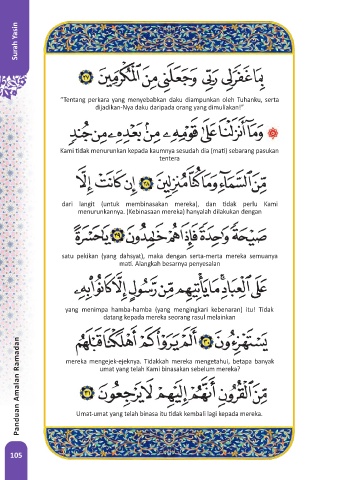 Surah Yasin
بِمَا غَفَرَ لِى رَبِّى وَجَعَلَنِى مِنَ ٱلْمُكْرَمِينَ ٢٧
"Tentang perkara yang menyebabkan daku diampunkan oleh Tuhanku, serta
dijadikan-Nya daku daripada orang yang dimuliakan!"
۞ وَمَآ أَنزَلْنَا عَلَىٰ قَوْمِهِۦ مِنۢ بَعْدِهِۦ مِن جُندٍ
Kami tidak menurunkan kepada kaumnya sesudah dia (mati) sebarang pasukan
tentera
مِّنَ ٱلسَّمَآءِ وَمَا كُنَّا مُنزِلِينَ ٢٨ إِن كَانَتْ إِلَّا
dari langit (untuk membinasakan mereka), dan tidak perlu Kami
menurunkannya. (Kebinasaan mereka) hanyalah dilakukan dengan
صَيْحَةً وَٰحِدَةً فَإِذَا هُمْ خَـٰمِدُونَ ٢٩ يَـٰحَسْرَةً
satu pekikan (yang dahsyat), maka dengan serta-merta mereka semuanya
mati. Alangkah besarnya penyesalan
عَلَى ٱلْعِبَادِ ۚ مَا يَأْتِيهِم مِّن رَّسُولٍ إِلَّا كَانُوا۟ بِهِۦ
yang menimpa hamba-hamba (yang mengingkari kebenaran) itu! Tidak
datang kepada mereka seorang rasul melainkan
يَسْتَهْزِءُونَ ٣٠ أَلَمْ يَرَوْا۟ كَمْ أَهْلَكْنَا قَبْلَهُم
mereka mengejek-ejeknya. Tidakkah mereka mengetahui, betapa banyak
umat yang telah Kami binasakan sebelum mereka?
مِّنَ ٱلْقُرُونِ أَنَّهُمْ إِلَيْهِمْ لَا يَرْجِعُونَ ٣١
Umat-umat yang telah binasa itu tidak kembali lagi kepada mereka.
Panduan Amalan Ramadan
105